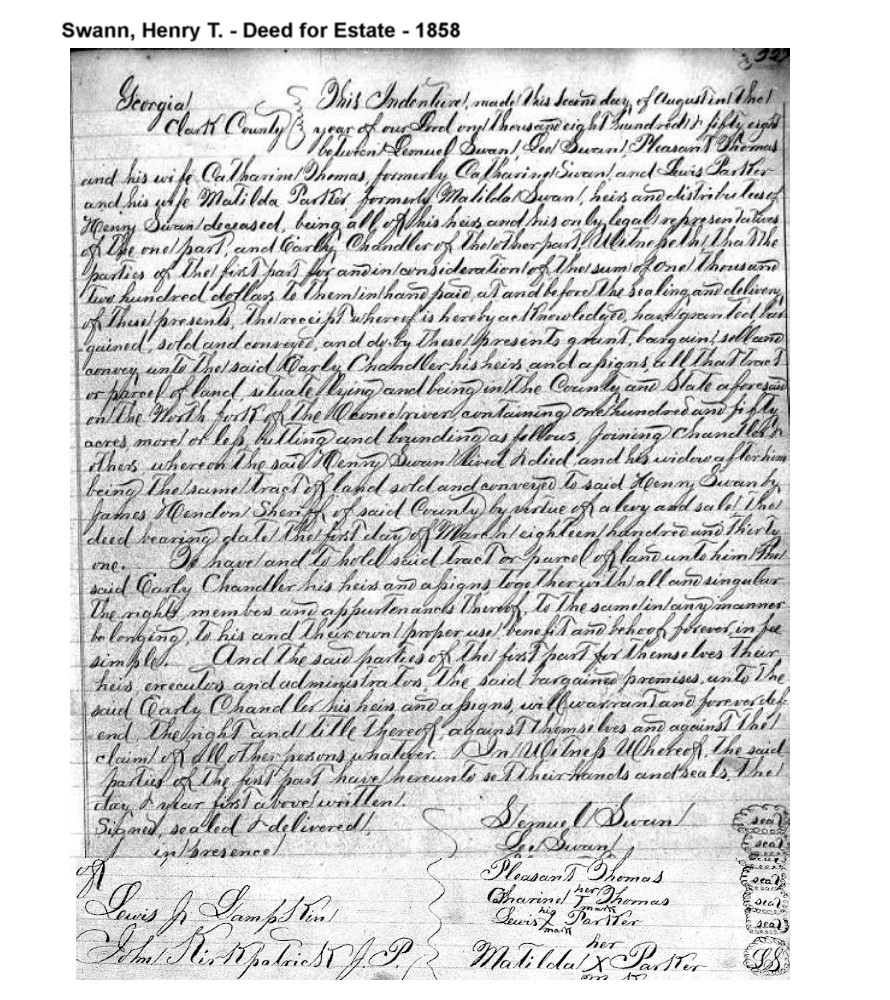 Swann, Henry T. - Deed for Estate - 1858
327
Georgia This Indenture, made this second day of August in the
Clark County year of our Lord one thousand eight hundred & fifty eight
between Lemuel Swan, Lee Swan, Pleasant Thomas
and his wife Catharine Thomas, formerly Catharine Swan, and Lewis Parker
and his wife Matilda Parker formerly Matilda Swan, heirs and distributees of
Henry Swan deceased, being all of his heirs and his only legal representatives
of the one part, and Early Chandler of the other part, Witnesseth that the
parties of the first part for and in consideration of the sum of one thousand
two hundred dollars to them in hand paid, at and before the sealing and delivery
of these presents, the receipt whereof is hereby acknowledged, have granted bar
gained, sold and conveyed, and do by these presents grant, bargain, sell and
convey unto the said Early Chandler his heirs and assigns all that tract
or parcel of land situate lying and being in the County and State aforesaid
on the North fork of the Oconee river containing one hundred and fifty
acres more or less, butting and bounding as follows, Joining Chandler &
others whereon the said Henry Swan lived & died, and his widow after him
being the same tract of land sold and conveyed to said Henry Swan by
James Hendon Sheriff of said County by virtue of a levy and sale the
deed bearing date the first day of March eighteen hundred and thirty
one. To have and to hold said tract or parcel of land unto him the
said Early Chandler his heirs and assigns together with all and singular
the rights, members and appurtenances thereof, to the same in any manner
belonging, to his and their own proper use, benefit and behoof forever, in fee
simple. And the said parties of the first part for themselves their
heirs, executors and administrators, the said bargained premises, unto the
said Early Chandler his heirs and assigns, will warrant and forever def
end the right and title thereof, against themselves and against the
claim of all other persons whatever. In Witness Whereof, the said
parties of the first part have hereunto set their hands and seals, the
day & year first above written.
Signed, sealed & delivered, Lemuel Swan seal
in presence Lee Swan seal
of Pleasant Thomas seal
her
Charine T Thomas seal
mark
Lewis Jr Lampkin his
Lewis X Parker seal
mark
John Kirkpatrick J. P. her
Matilda X Parker LS